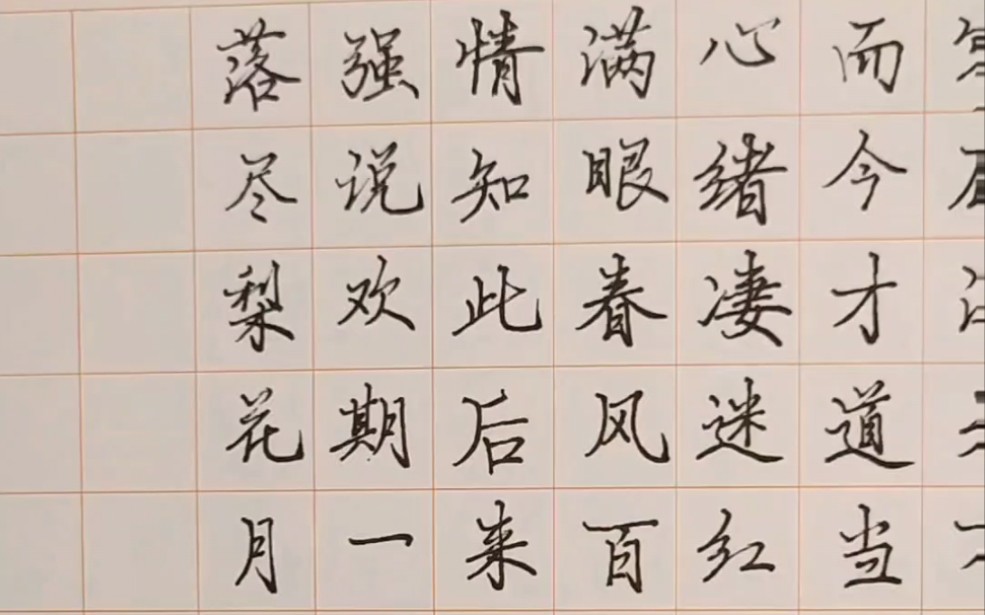 而今才道当
心绪凄迷红
满眼春风百
情知此后来
强说欢期一
落尽梨花月